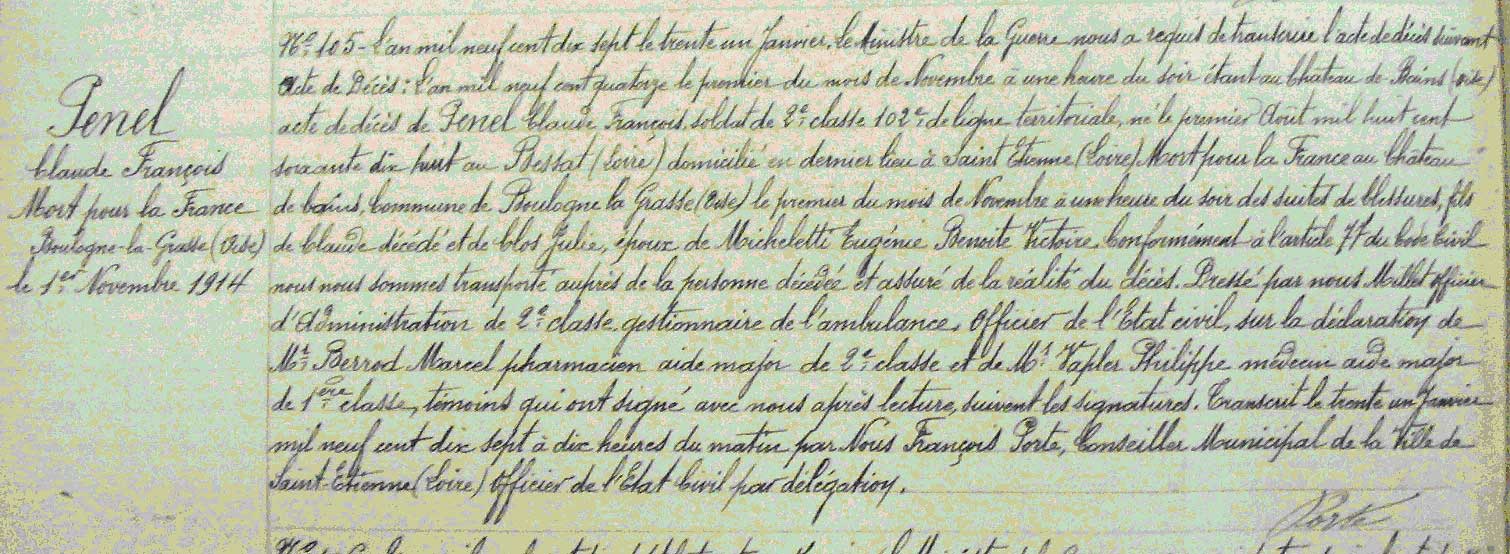 Penel
Claude François
Mort pour la France
Boulogne-la-Grasse (Oise)
le 1er Novembre 1914
No 105 - L'an mil neuf cent dix sept le trente un Janvier, le Ministre de la Guerre nous a requis de transcrire l'acte de décès suivant
Acte de Décès : L'an mil neuf cent quatorze le premier du mois de Novembre à une heure du soir étant au Château de Bains (Oise)
acte de décès de Penel Claude François, soldat de 2e classe 102e de ligne territoriale, né le premier Août mil huit cent
soixante dix huit au Bessat (Loire) domicilié en dernier lieu à Saint Etienne (Loire) Mort pour la France au Château
de bains, Commune de Boulogne la Grasse (Oise) le premier du mois de Novembre à une heure du soir des suites de blessures, fils
de Claude décédé et de Clos Julie, époux de Micheletti Eugénie Benoite Victoire. Conformément à l'article 77 du Code Civil
nous nous sommes transporté auprès de la personne décédée et assuré de la réalité du décès. Dressé par nous Millet officier
d'Administration de 2e classe gestionnaire de l'ambulance, Officier de l'Etat civil, sur la déclaration de
Mr Berrod Marcel pharmacien aide major de 2e classe et de Mr Vapler Philippe médecin aide major
de 1ère classe, témoins qui ont signé avec nous après lecture, suivent les signatures. Transcrit le trente un Janvier
mil neuf cent dix sept à dix heures du matin par Nous François Porte, Conseiller Municipal de la Ville de
Saint-Etienne (Loire) Officier de l'Etat Civil par délégation.
Porte